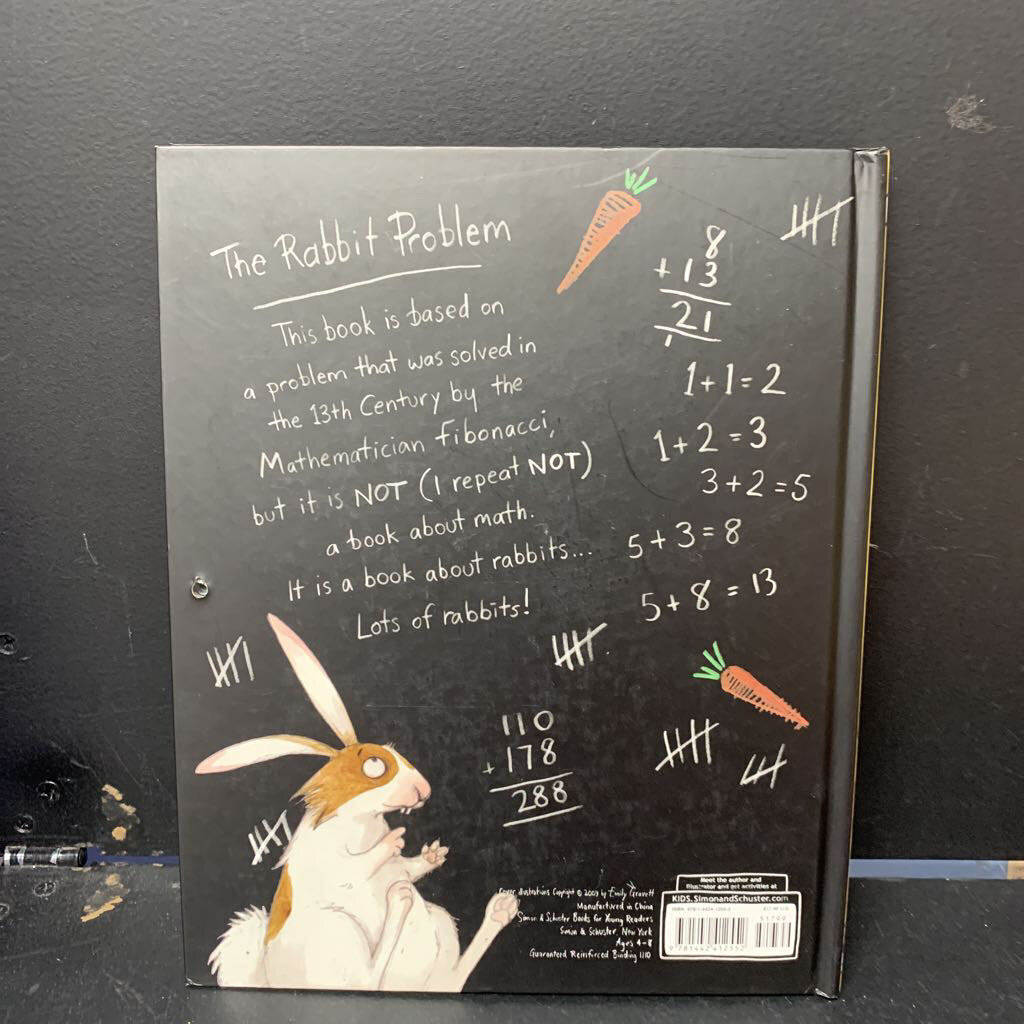 The Rabbit Problem
This book is based on
a problem that was solved in
the 13th Century by the
Mathematician Fibonacci,
but it is NOT (I repeat NOT)
a book about math.
It is a book about rabbits...
Lots of rabbits!
8
+ 13
21
1
1 + 1 = 2
1 + 2 = 3
3 + 2 = 5
5 + 3 = 8
5 + 8 = 13
110
+ 178
288
Cover illustrations Copyright © 2009 by Emily Gravett
Manufactured in China
Simon & Schuster Books for Young Readers
Simon & Schuster, New York
Ages 4-8
Guaranteed Reinforced Binding 1110
Meet the author and
illustrator and get activities at
KIDS.SimonandSchuster.com
51799
9 781442 412552